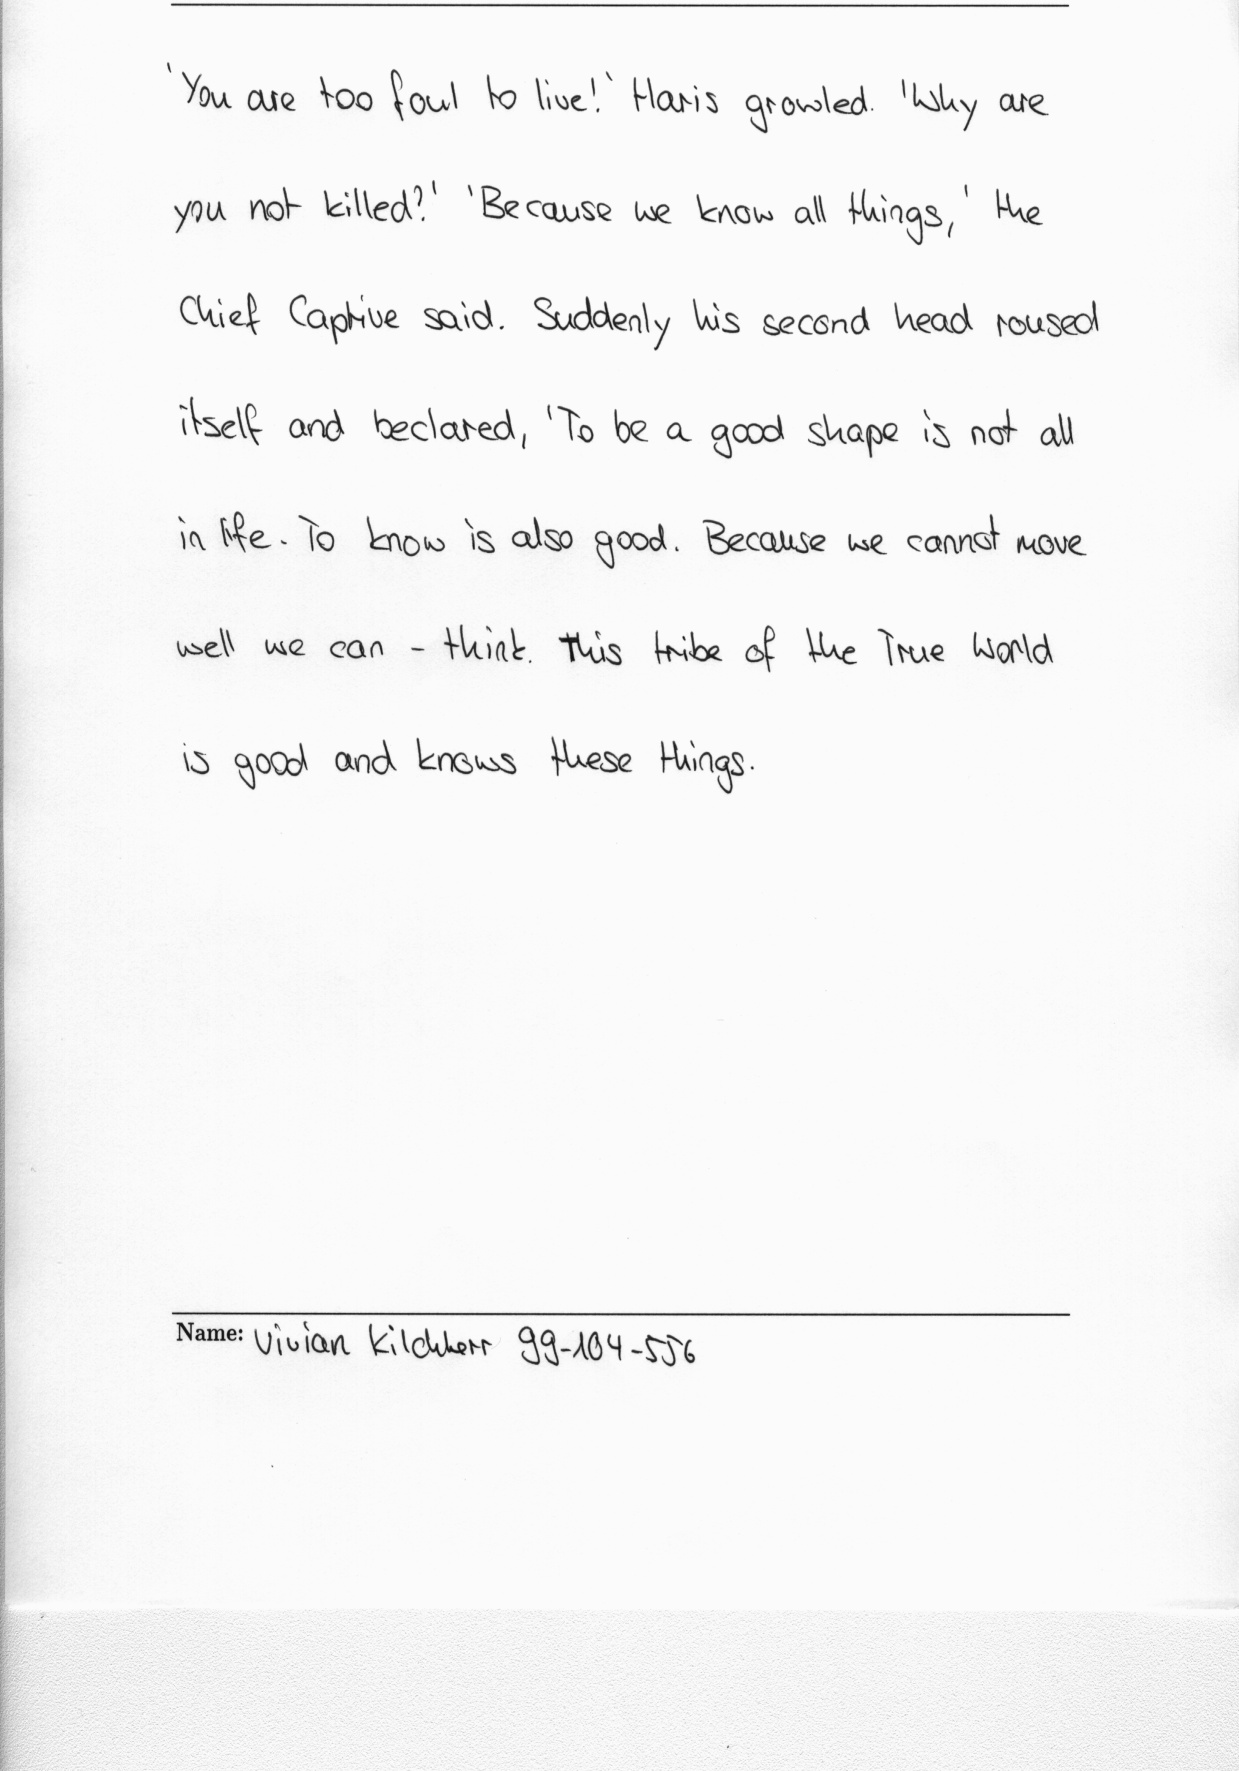 'You are too foul to live!' Haris growled. 'Why are
you not killed?' 'Because we know all things,' the
Chief Captive said. Suddenly his second head roused
itself and beclared, 'To be a good shape is not all
in life. To know is also good. Because we cannot move
well we can - think. This tribe of the True World
is good and knows these things.
Name: Vivian Kilchherr 99-104-556